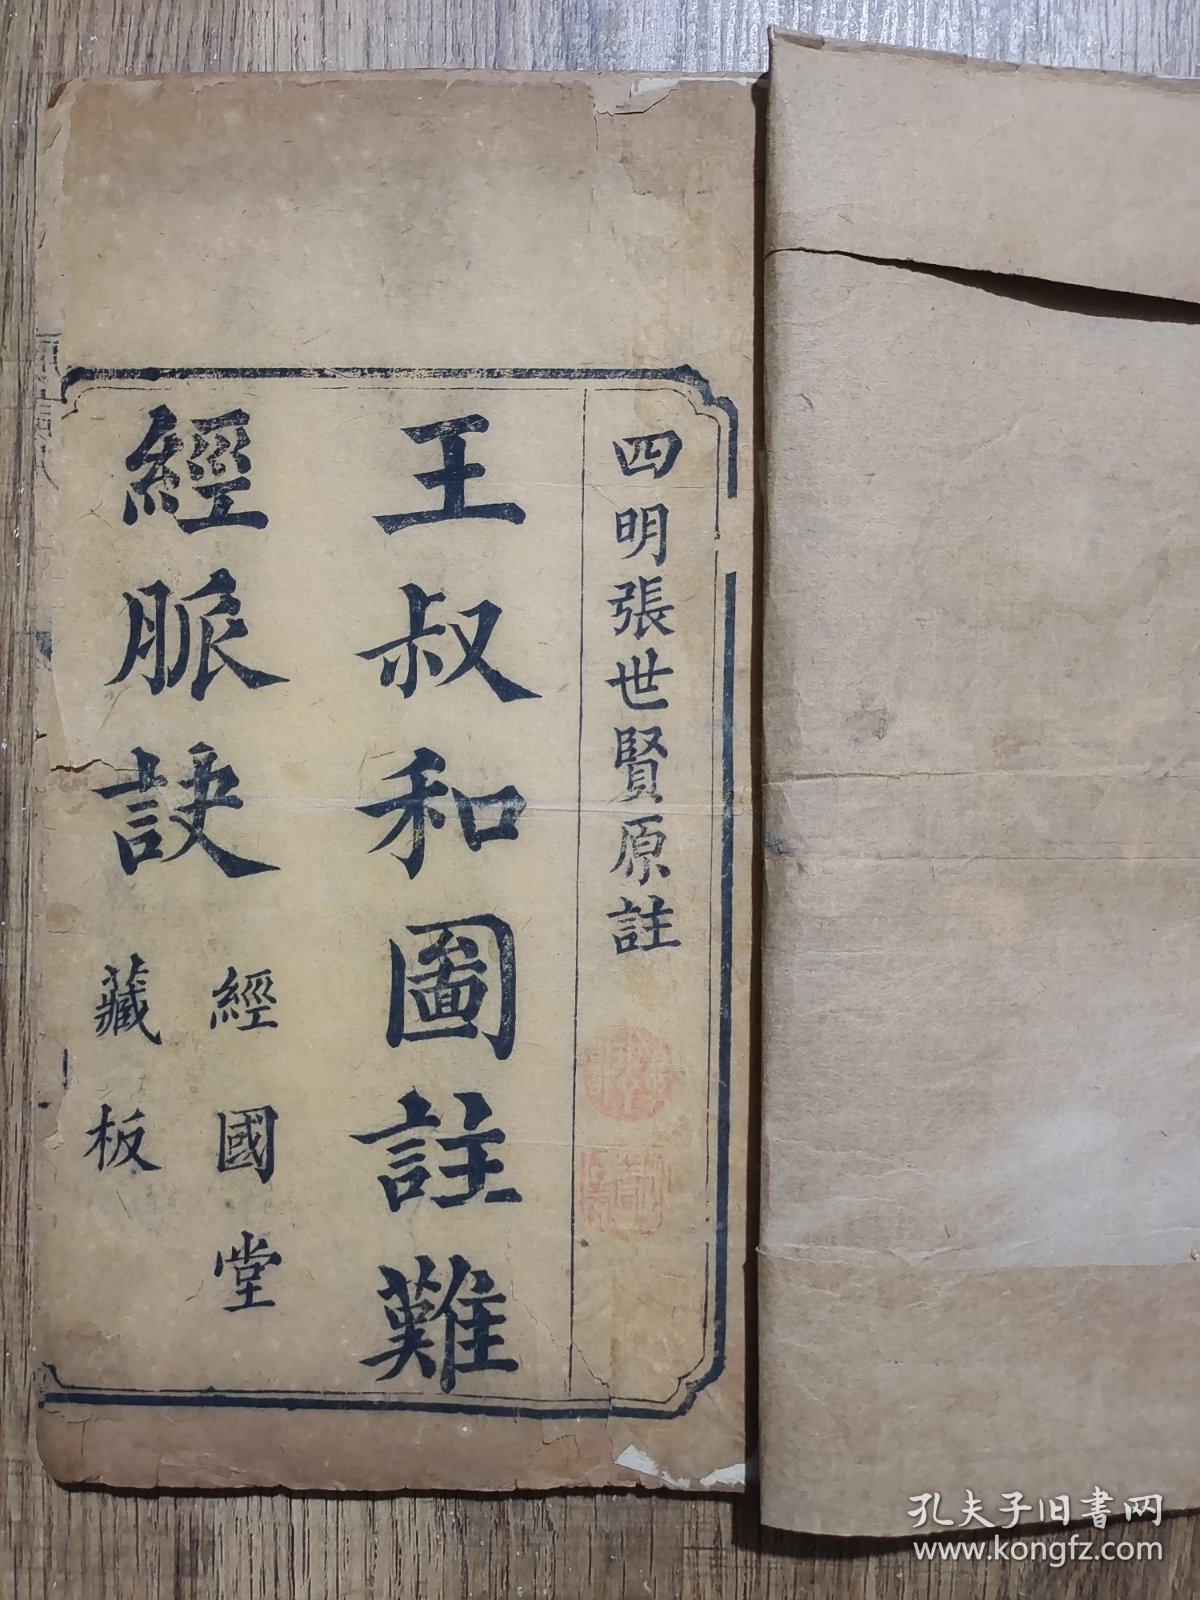 四明張世賢原註
王叔和圖註難
經脈訣
經國堂
藏板
孔夫子旧书网
www.kongfz.com